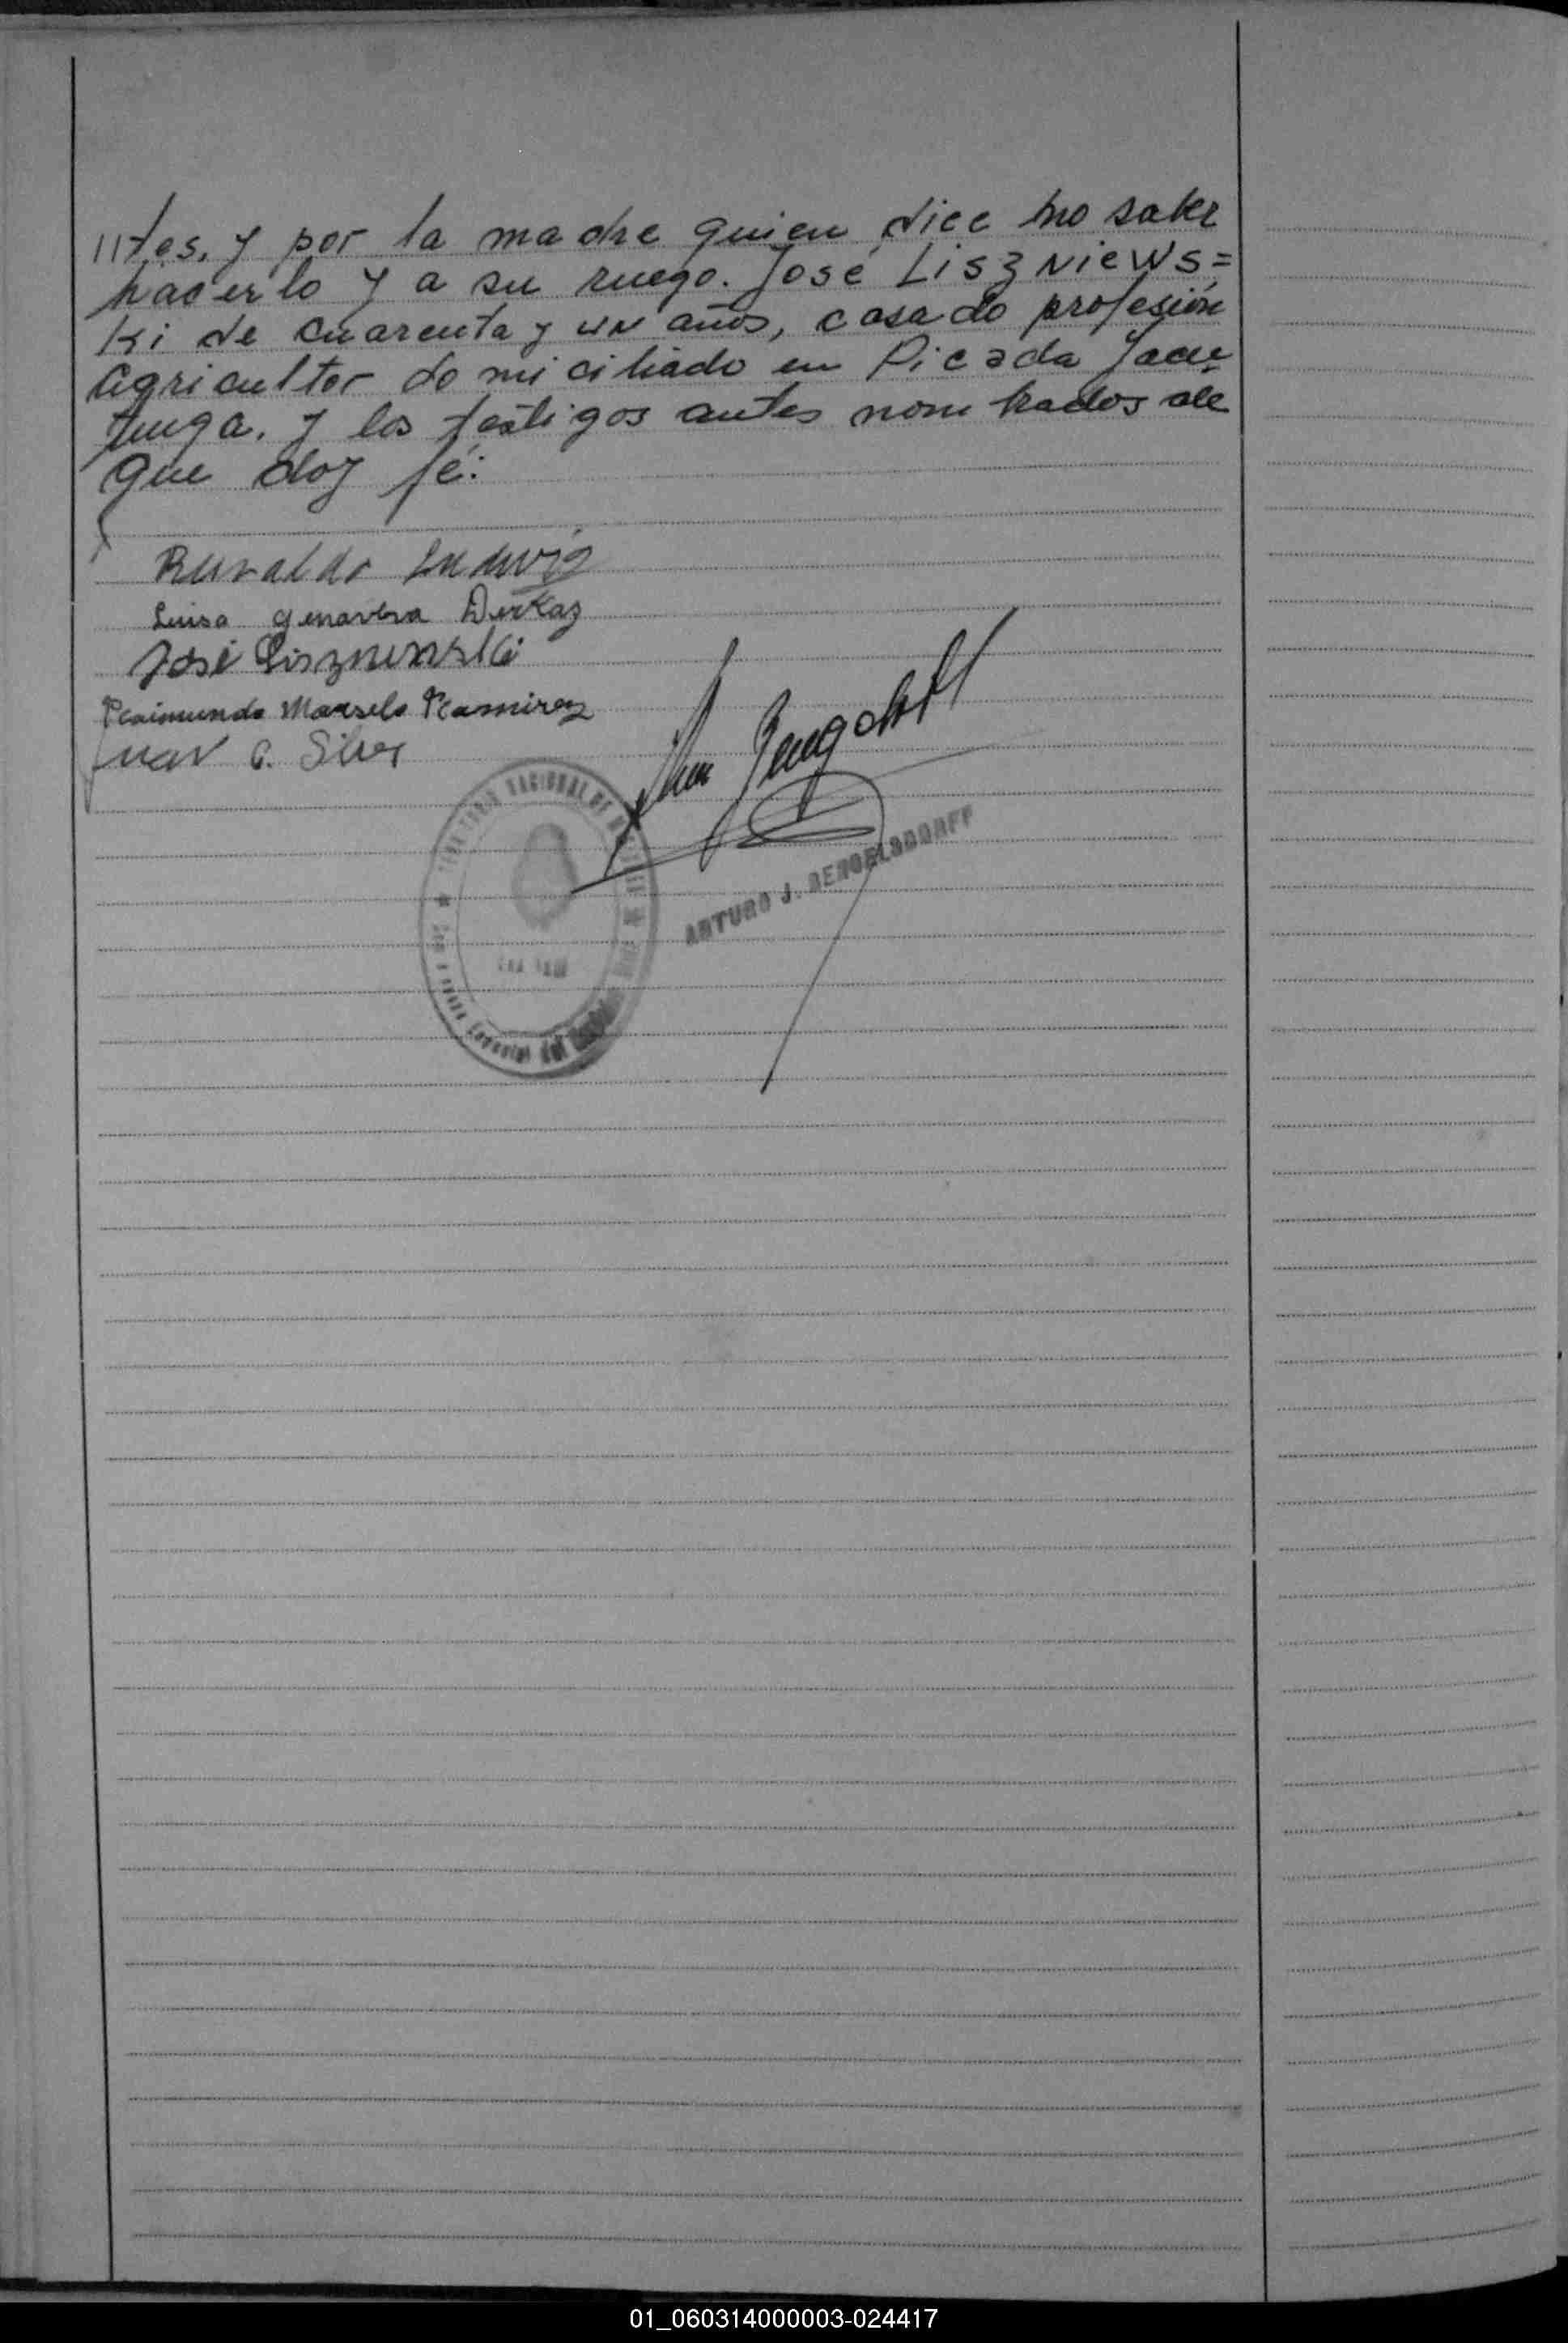 //tes, y por la madre quien dice no saber
hacerlo y a su ruego. José Liszniews=
ki de cuarenta y un años, casado profesión
agricultor domiciliado en Picada Yacu=
tinga. y los testigos antes nombrados de
que doy fé:
Ruvaldo Ludwig
Luisa Genavera Derkaz
José Liszniewski
Raimundo Marselo Ramirez
Juan C. Silva
NACIONAL DE
ARTURO J. BENGELSDORFF
01_060314000003-024417